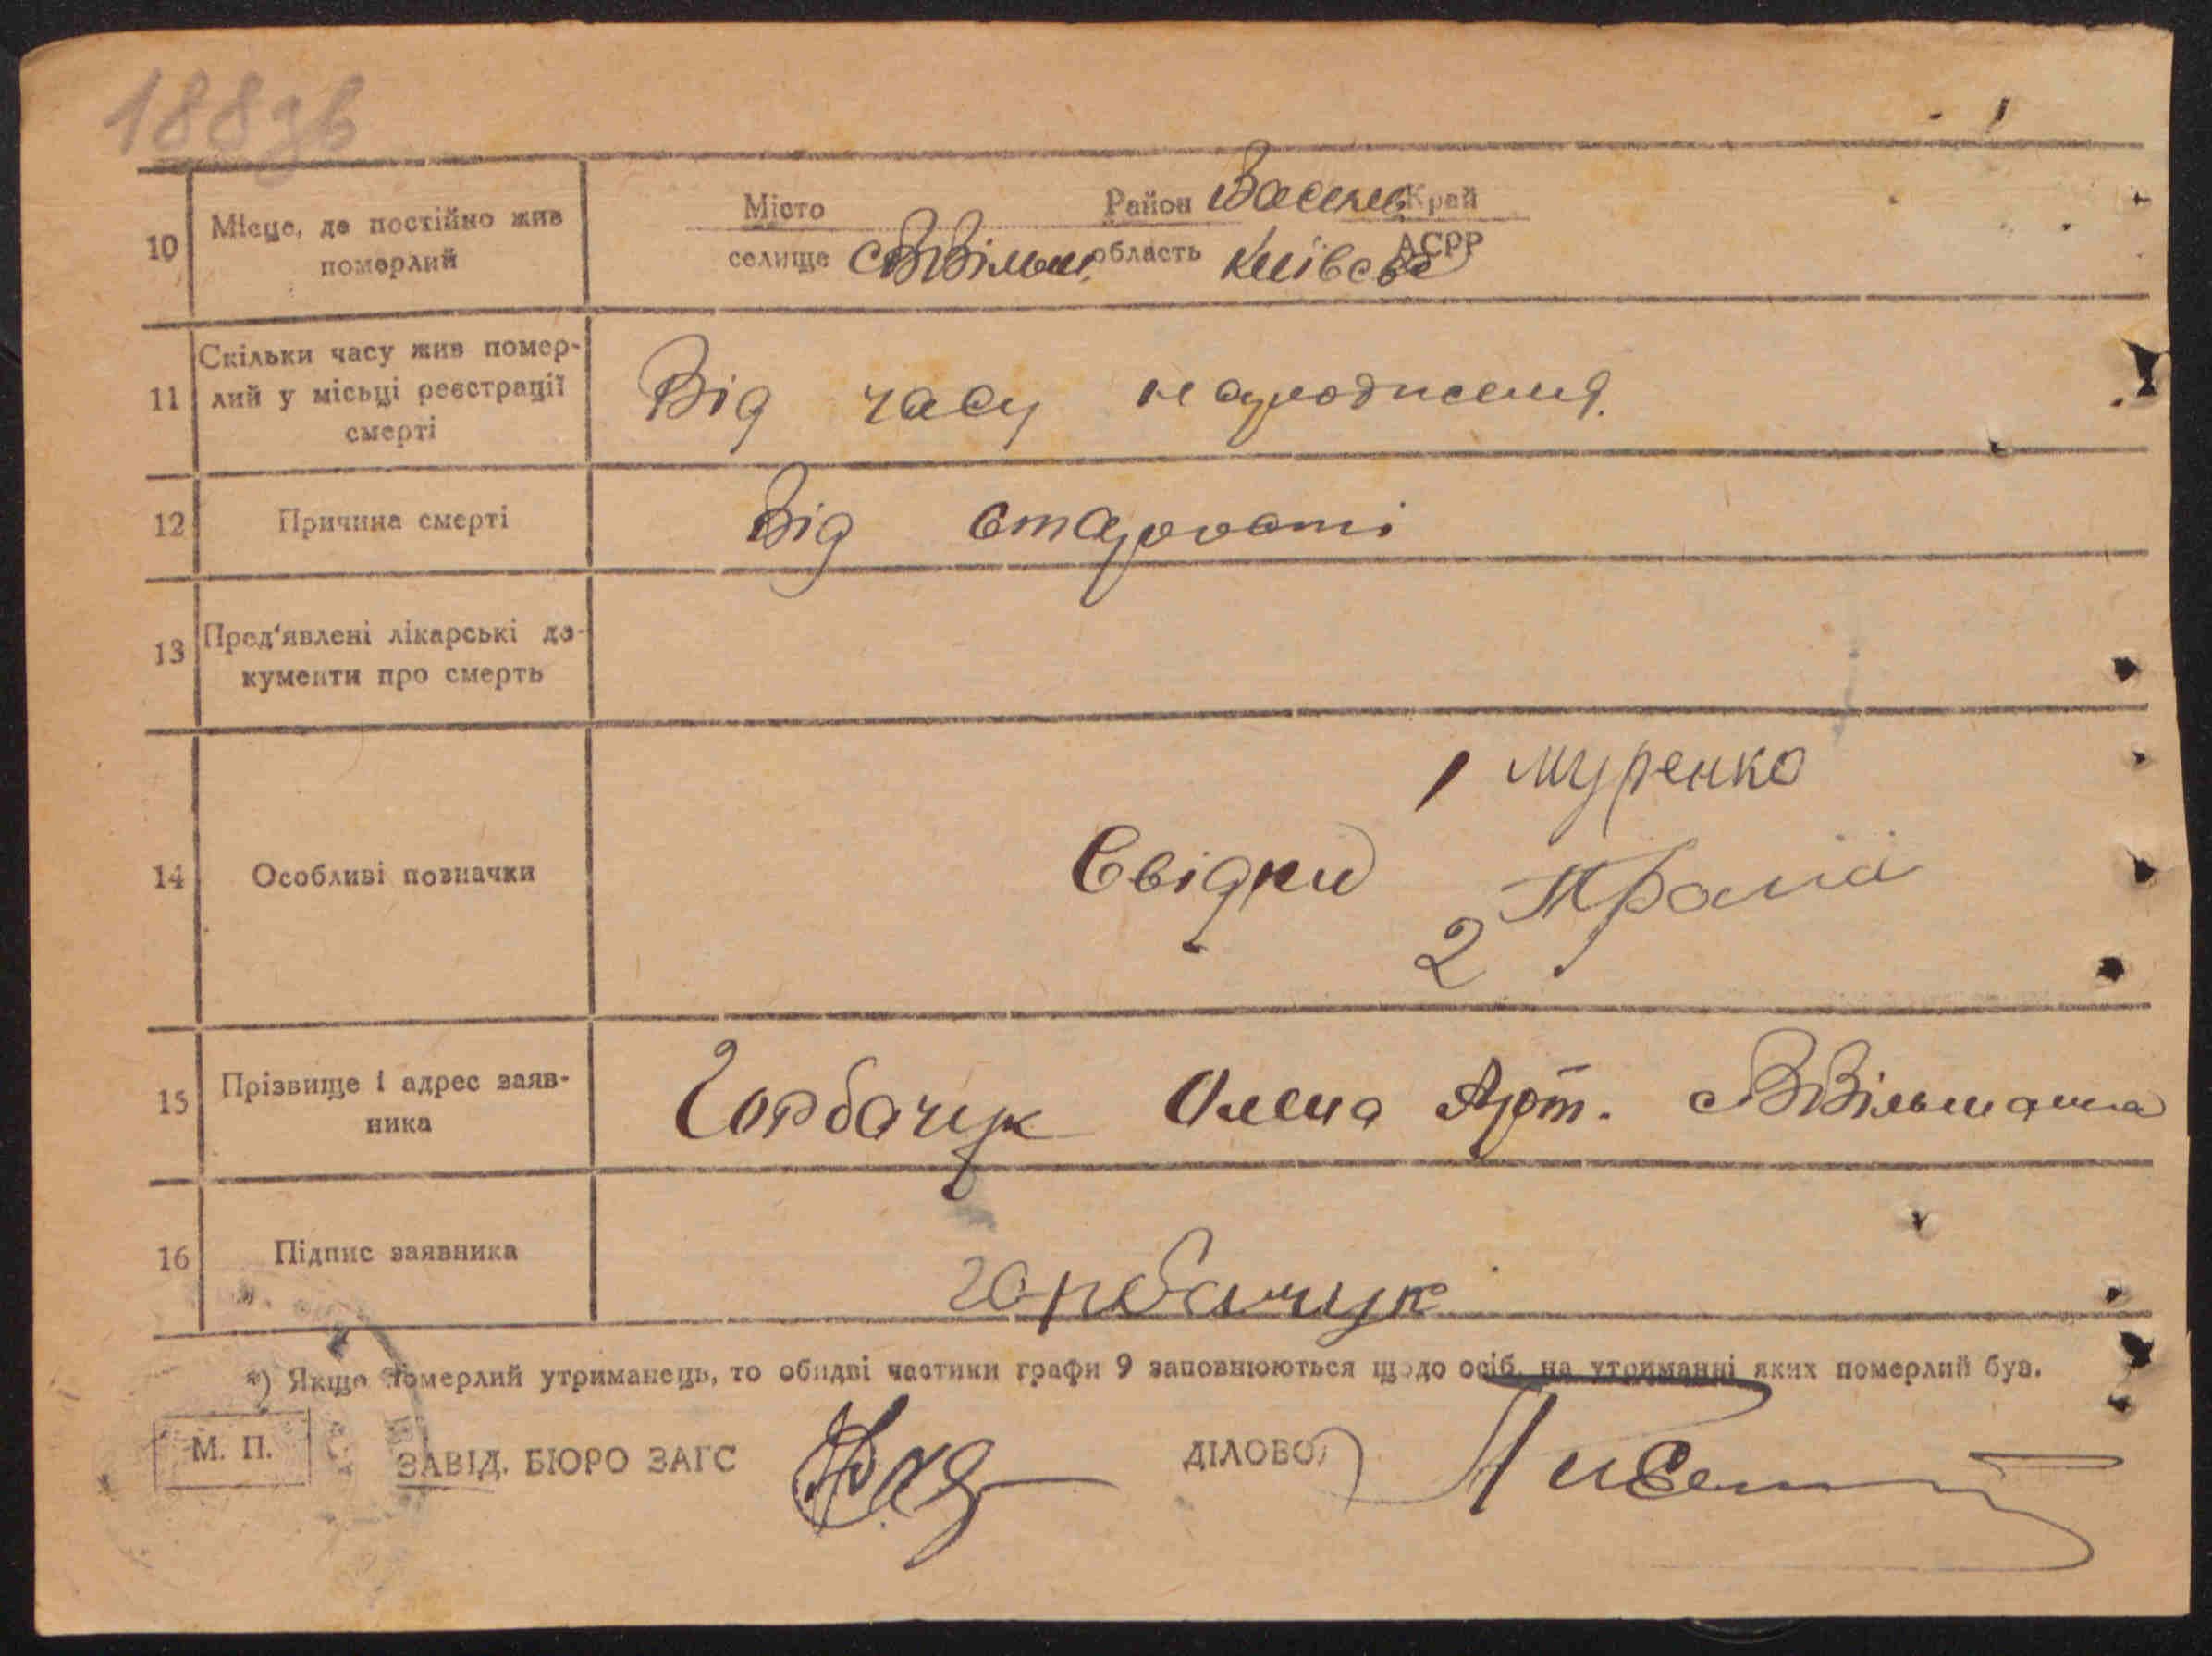 188зв
10 Місце, де постійно жив померлий
Місто Район Васильк. Край
селище с. В Вільш. область Київська АСРР
11 Скільки часу жив помер-
лий у місьці реєстрації
смерті
Від часу народження.
12 Причина смерті Від старости
13 Пред'явлені лікарські до-
кументи про смерть
14 Особливі позначки
Свідки
1 Муренко
2
15 Прізвище і адрес заяв-
ника
Горбачук Олена Арт. с. В Вільшанка
16 Підпис заявника Горбачук
*) Якщо померлий утриманець, то обидві частини графи 9 заповнюються щодо осіб, на утриманні яких померлий був.
М. П. ЗАВІД. БЮРО ЗАГС ДІЛОВОД